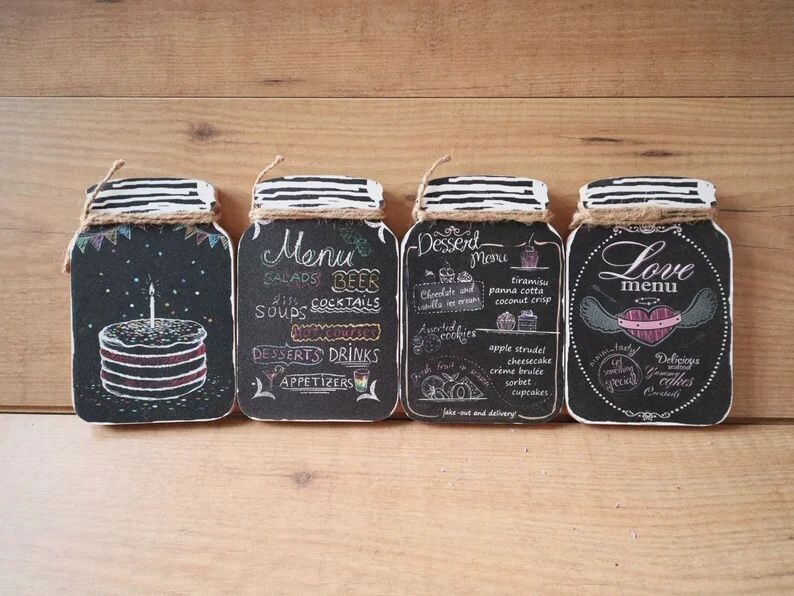 Menu
SALADS BEER
SOUPS COCKTAILS
HOT COURSES
DESSERTS DRINKS
APPETIZERS
Dessert
Menu
Chocolate and
vanilla ice cream
tiramisu
panna cotta
coconut crisp
Assorted
cookies
apple strudel
cheesecake
crème brulée
sorbet
cupcakes
Fresh fruit in season
Take-out and delivery
Love
menu
tasty!
Get
something
special!
Delicious
seafood
Yummy
cakes
Cocktails